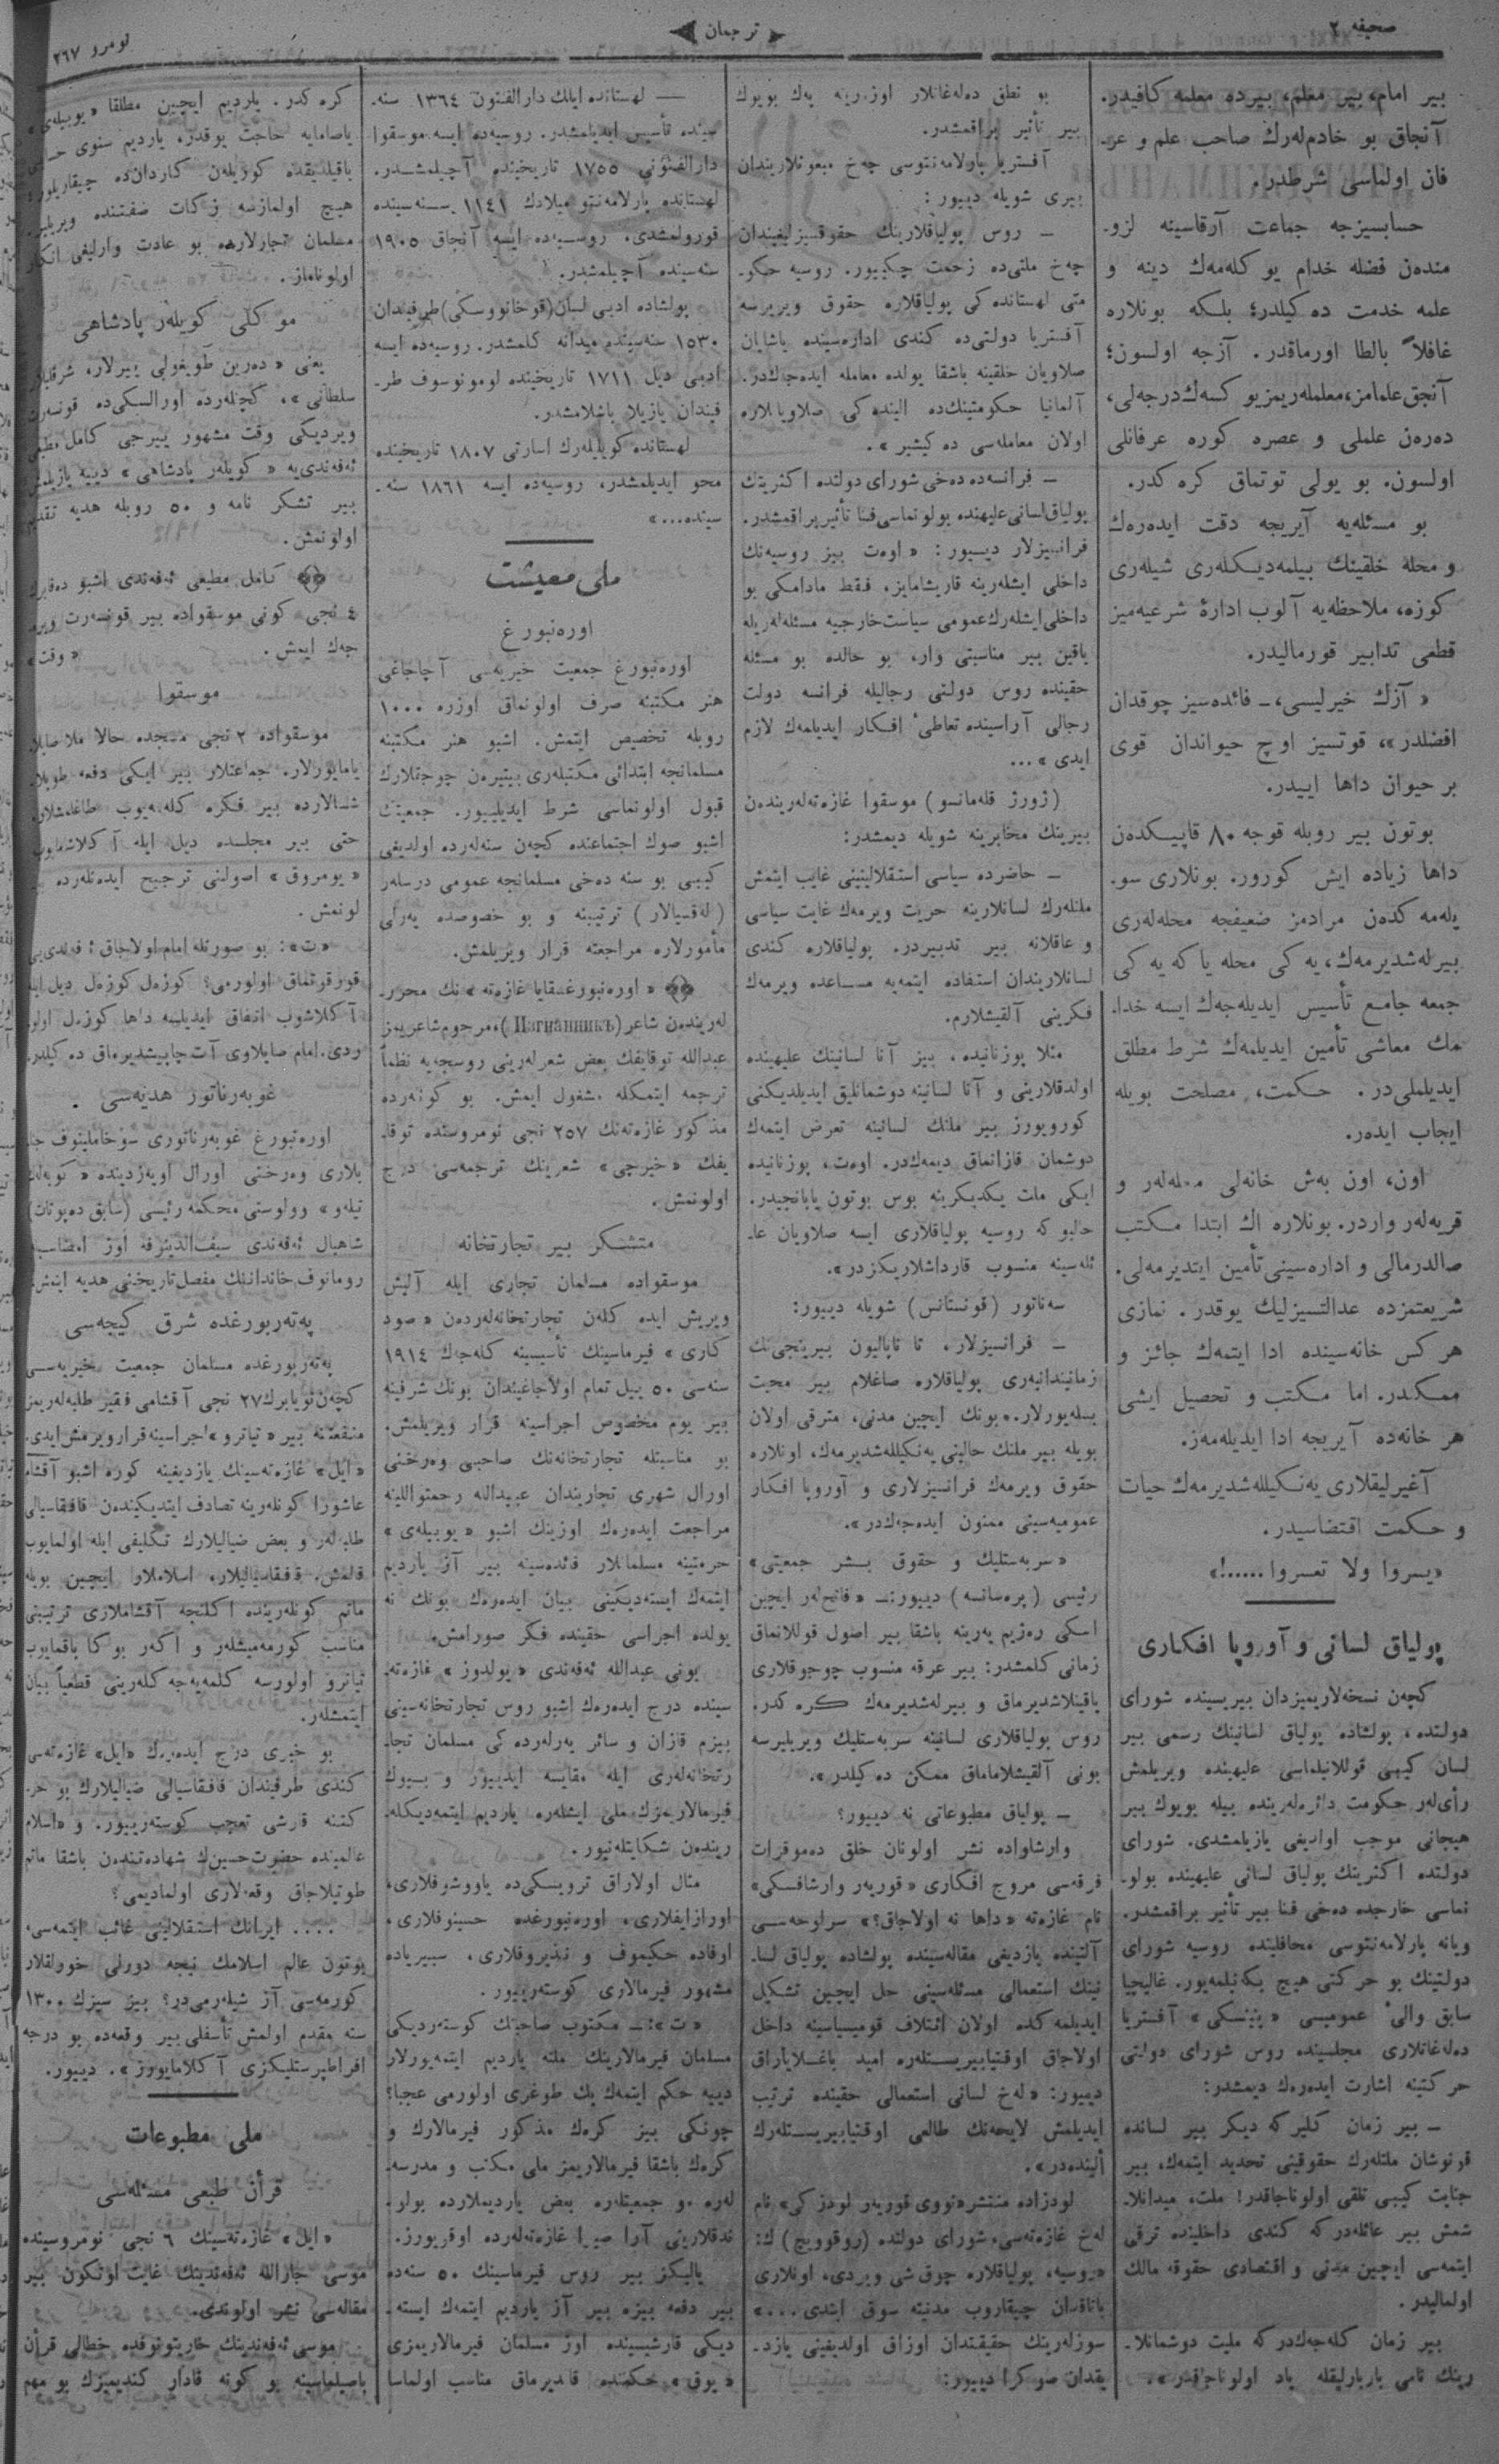 صحیفه ٢
ترجمان
نومرو ٢٦٧
بیر امام، بیر معلم، بیرده معلمه کافیدر.
آنجاق بو خادم‌له‌رك صاحب علم و عر-
فان اولماسی شرطدر.
حسابسیزجه جماعت آرقاسینه لزو-
مندەن فضله خدام یوکله‌مەك دینه و
علمه خدمت دەکیلدر؛ بلکه بونلاره
غافلاً بالطا اورماقدر. آزجه اولسون؛
آنجق علمامز، معلمله‌ریمز یوکسەك درجه‌لی،
دەرەن علملی و عصره کوره عرفانلی
اولسون. بو یولی توتماق کره کدر.
بو مسئله‌یه آیریجه دقت ایدەرەك
و محله خلقینك بیلمەدیکلەری شیلەری
کوزه، ملاحظه‌یه آلوب ادارۀ شرعیه‌میز
قطعی تدابیر قورمالیدر.
« آزك خیرلیسی، ـ فائده‌سیز چوقدان
افضلدر»، قوتسیز اوچ حیواندان قوی
بر حیوان داها اییدر.
بوتون بیر روبله قوجه ٨٠ قاپیـکدەن
داها زیاده ایش کورور. بونلاری سو-
یله‌مه کدەن مرادمز ضعیفجه محله‌لەری
بیرلەشدیرمەك، یەکی محله یا که یەکی
جمعه جامع تأسیس ایدیلەجەك ایسه خدا-
مك معاشی تأمین ایدیلمەك شرط مطلق
ایدیلملی‌در. حکمت، مصلحت بویله
ایجاب ایدەر.
اون، اون بەش خانه‌لی محله‌لەر و
قریه‌لەر واردر. بونلاره اك ابتدا مکتب
صالدرمالی و اداره‌سینی تأمین ایتدیرمه‌لی.
شریعتمزده عدالتسیزلیك یوقدر. نمازی
هر کس خانه‌سینده ادا ایتمەك جائز و
ممکـندر. اما مکتب و تحصیل ایشی
هر خانه‌ده آیریجه ادا ایدیله‌مەز.
آغیرلیقلاری یەنـکیللەشدیرمەك حیات
و حکمت اقتضاسیدر.
«یسروا ولا تعسروا.....!»
پولیاق لسانی و آوروپا افکاری
کچەن نسخه‌لاریمیزدان بیریسینده شورای
دولتده، پولشاده پولیاق لسانینك رسمی بیر
لسان کیبی قوللانیلماسی علیهینده ویریلمش
رأی‌لەر حکومت دائره‌لەرینده بیله بویوك بیر
هیجانی موجب اولدیغی یازیلمشدی. شورای
دولتده اکثریتك پولیاق لسانی علیهینده بولو-
نماسی خارجده دەخی فنا بیر تأثیر براقمشدر.
ویانه پارلامەنتوسی محافلینده روسیه شورای
دولتینك بو حرکتی هیچ بکەنیلمەیور. غالیچیا
سابق والیٔ عمومیسی آفستریا
دەلەغاتلاری مجلسینده روس شورای دولتی
حرکتینه اشارت ایدەرەك دیمشدر:
ـ بیر زمان کلیر که دیکر بیر لسانده
قونوشان ملتلەرك حقوقینی تحدید ایتمەك، بیر
جنایت کیبی تلقی اولوناجاقدر! ملت، میدانلا-
شمش بیر عائلەدر که کندی داخلینده ترقی
ایتمەسی ایچین مدنی و اقتصادی حقوقه مالك
اولمالیدر.
بیر زمان کلەجەکدر که ملیت دوشمانلا-
رینك نامی باربارلیقله یاد اولوناجاقدر».
بو نطق دەلەغاتلار اوزرینه پەك بویوك
بیر تأثیر براقمشدر.
آفستریا پارلامەنتوسی چەخ مبعوثلاریندان
بیری شویله دییور:
ـ روس پولیاقلارینك حقوقسیزلیغیندان
چەخ ملتی‌ده زحمت چکییور. روسیه حکو-
متی لهستانده‌کی پولیاقلاره حقوق ویریرسه
آفستریا دولتی‌ده کندی اداره‌سینده یاشایان
صلاویان خلقینه باشقا یولده معامله ایدەجەکدر.
آلمانیا حکومتینك‌ده الینده‌کی صلاویانلاره
اولان معامله‌سی دەکیشیر».
ـ فرانسه‌ده دەخی شورای دولتده اکثریتك
پولیاق لسانی علیهنده بولونماسی فنا تأثیر براقمشدر.
فرانسیزلار دییور: «اوەت بیز روسیەنك
داخلی ایشلەرینه قاریشامایز، فقط مادامکی بو
داخلی ایشلەرك عمومی سیاست خارجیه مسئله‌لەریله
یاقین بیر مناسبتی وار، بو حالده بو مسئله
حقینده روس دولتی رجالیله فرانسه دولت
رجالی آراسینده تعاطیٔ افکار ایدیلمەك لازم
ایدی»...
(ژورژ قلەمانسو) موسقوا غازەتەلەریندەن
بیرینك مخابرینه شویله دیمشدر:
ـ حاضرده سیاسی استقلالیتینی غایب ایتمش
ملتلەرك لسانلارینه حریت ویرمەك غایت سیاسی
و عاقلانه بیر تدبیردر. پولیاقلاره کندی
لسانلاریندان استفاده ایتمەیه مساعده ویرمەك
فکرینی آلقیشلارم.
مثلا پوزنانیده، بیز آنا لسانینك علیهینده
اولدقلارینی و آنا لسانینه دوشمانلیق ایدیلدیکنی
کورویورز بیر ملتك لسانینه تعرض ایتمەك
دوشمان قازانماق دیمەکدر. اوەت، پوزنانیده
ایکی ملت یکدیکرینه بوس بوتون یابانجیدر.
حالبو که روسیه پولیاقلاری ایسه صلاویان عا-
ئله‌سینه منسوب قارداشلاریکزدر».
سەناتور (قونستانس) شویله دییور:
ـ فرانسیزلار، تا ناپالیون بیرینجی‌نك
زمانیندانبەری پولیاقلاره صاغلام بیر محبت
بسلەیورلار. بونك ایچین مدنی، مترقی اولان
بویله بیر ملتك حالینی یەنکیللەشدیرمەك، اونلاره
حقوق ویرمەك فرانسیزلاری و آوروپا افکار
عمومیه‌سینی ممنون ایدەجەکدر».
«سربەستلیك و حقوق بشر جمعیتی»
رئیسی (پرەسانسه) دییور: ـ «فاتح‌لەر ایچین
اسکی رەژیم یەرینه باشقا بیر اصول قوللانماق
زمانی کلمشدر: بیر عرقه منسوب چوجوقلاری
یاقینلاشدیرماق و بیرلەشدیرمەك کره کدر.
روس پولیاقلاری لسانینه سربەستلیك ویریلیرسه
بونی آلقیشلاماماق ممکن دەکیلدر».
ـ پولیاق مطبوعاتی نه دییور؟
وارشاواده نشر اولونان خلق دەموقرات
فرقه‌سی مروج افکاری «قوریەر وارشافسکی»
نام غازەته «داها نه اولاجاق؟» سرلوحه‌سی
آلتینده یازدیغی مقاله‌سینده پولشاده پولیاق لسا-
نینك استعمالی مسئله‌سینی حل ایچین تشکیل
ایدیلمەکده اولان ائتلاف قومیسیاسینه داخل
اولاجاق اوقتیابیریستلەره امید باغلایاراق
دییور: «لەخ لسانی استعمالی حقینده ترتیب
ایدیلمش لایحه‌نك طالعی اوقتیابیریستلەرك
ألینده‌در».
لودزاده منتشر «نووی قوریەر لودزکی» نام
لەخ غازەتەسی، شورای دولتده ك:
«روسیه، پولیاقلاره چوق شی ویردی، اونلاری
باتاقدان چیقاروب مدنیته سوق ایتدی...»
سوزلەرینك حقیقتدان اوزاق اولدیغینی یازد-
یقدان صوکرا دییور:
ـ لهستانده ایلك دارالفنون ١٣٦٤ سنه-
سینده تأسیس ایدیلمشدر. روسیه‌ده ایسه موسقوا
دارالفنونی ١٧٥٥ تاریخینده آچیلمشـدر.
لهستانده پارلامەنتو میلادك ١١٤١ سـنه‌سینده
قورولمشدی. روسـیه‌ده ایسه آنجاق ١٩٠٥
سنه‌سینده آچیلمشدر.
پولشاده ادبی لسان (قوخانووسکی) طرفیندان
١٥٣٠ سنه‌سینده میدانه کلمشدر. روسیه‌ده ایسه
ادبی دیل ١٧١١ تاریخینده لومونوسوف طر-
فیندان یازیلا باشلامشدر.
لهستانده کویلیلەرك اسارتی ١٨٠٧ تاریخینده
محو ایدیلمشدر، روسیه‌ده ایسه ١٨٦١ سنه-
سینده...»
ملی معیشت
اورەنبورغ
اورەنبورغ جمعیت خیریه‌سی آچاجاغی
هنر مکتبنه صرف اولونماق اوزره ١٠٠٠
روبله تخصیص ایتمش. اشبو هنر مکتبنه
مسلمانجه ابتدائی مکتبلەری بیتیرەن چوجقلارك
قبول اولونماسی شرط ایدیلییور. جمعیتك
اشبو صوك اجتماعنده کچەن سنەلەرده اولدیغی
کیبی بو سنه دەخی مسلمانجه عمومی درسلەر
(لەقسیالار) ترتیبنه و بو خصوصده یەرلی
مأمورلاره مراجعته قرار ویریلمش.
«اورەنبورغسقایا غازەته»نك محرر-
لەریندەن شاعر (Изгнанникъ)، مرحوم شاعریمز
عبدالله توقایفك بعض شعرلەرینی روسجه‌یه نظماً
ترجمه ایتمکله مشغول ایمش. بو کونلەرده
مذکور غازەتەنك ٢٥٧ نجی نومروسنده توقا-
یفك «خیرچی» شعرینك ترجمه‌سی درج
اولونمش.
متشکر بیر تجارتخانه
موسقواده مسلمان تجاری ایله آلیش
ویریش ایده کلەن تجارتخانەلەردەن «صود
کاری» فیرماسینك تأسیسینه کلەجەك ١٩١٤
سنه‌سی ٥٠ ییل تمام اولاجاغیندان بونك شرفینه
بیر یوم مخصوص اجراسینه قرار ویریلمش.
بو مناسبتله تجارتخانەنك صاحبی وەرخنی
اورال شهری تجاریندان عبیدالله رحمتوالینه
مراجعت ایدەرەك اوزینك اشبو «یوبیلەی»
حرمتینه مسلمانلار فائده‌سینه بیر آز یاردیم
ایتمەك ایستەدیکینی بیان ایدەرەك بونك نه
یولده اجراسی حقینده فکر صورامش.
بونی عبدالله ئەفەندی «یولدوز» غازەتە-
سینده درج ایدەرەك اشبو روس تجارتخانەسینی
بیزم قازان و سائر یەرلەرده‌کی مسلمان تجا-
رتخانەلەری ایله مقایسه ایدییور و بـیوك
فیرمالاریمزك ملی ایشلەره یاردیم ایتمەدیکلە-
ریندەن شکایتلەنیور.
مثال اولاراق ترویسکی‌ده یاووشوفلاری،
اورازایفلاری، اورەنبورغده حسینوفلاری،
اوفاده حکیموف و نذیروفلاری، سیبیریاده
مشهور فیرمالاری کوستەرییور.
«ت»: ـ مکتوب صاحبنك کوستەردیکی
مسلمان فیرمالارینك ملته یاردیم ایتمەیورلار
دییه حکم ایتمەك پك طوغری اولورمی عجبا؟
چونکی بیز کرەك مذکور فیرمالارك و
کرەك باشقا فیرمالاریمز ملی مکتب و مدرسه-
لەره و جمعیتلەره بعض یاردیملارده بولو-
ندقلارینی آرا صیرا غازەتەلەرده اوقریورز.
یالیکز بیر روس فیرماسینك ٥٠ سنه‌ده
بیر دفعه بیزه بیر آز یاردیم ایتمەك ایستە-
دیکی قارشیسینده اوز مسلمان فیرمالاریمزی
«یوق» حکمنده قالدیرماق مناسب اولماسا
کره کدر. یاردیم ایچین مطلقا «یوبیلەی»
یاصامایه حاجت یوقدر، یاردیم سنوی
باقیلدیقده کوزیلەن کاردان‌ده چیقاریلور؛
هیچ اولمازسه زکات صفتنده ویریلیر.
مسلمان تجارلارده بو عادت وارلیغی انکار
اولونماز.
موکلی کویلەر پادشاهی
یعنی «دەرین طویغولی ییرلار، شرقیلار
سلطانی»، کچنلەرده اورالسکی‌ده قونسەرت
ویردیکی وقت مشهور ییرجی کامل مطیعی
ئەفەندی‌یه «کویلەر پادشاهی» دییه یازیلمش
بیر تشکر نامه و ٥٠ روبله هدیه تقدیم
اولونمش.
کامل مطیعی ئەفەندی اشبو دەقابرك
٤ نجی کونی موسقواده بیر قونسەرت ویره
جەك ایمش. «وقت»
موسقوا
موسقواده ٢ نجی مسجده حالا ملا صایلا
یامایورلار. جماعتلار بیر ایکی دفعه طوپلا
نسالارده بیر فکره کلەمەیوب طاغلمشلار.
حتی بیر مجلسده دیل ایله آکلاشمایوب
«یومروق» اصولنی ترجیح ایدەنلەرده بو
لونمش.
«ت»: بو صورتله امام اولاجاق
قورقوتماق اولورمی؟ کوزەل کوزەل دیل ایله
آکلاشوب اتفاق ایدیلسه داها کوزەل اولو
ردی. امام صایلاوی آت چاپیشدیرماق دەکیلدر.
غوبەرناتور هدیه‌سی
اورەنبورغ غوبەرناتوری سوخاملینوف جنا
بلاری وەرخنی اورال اویەزدینده
وولوستی محکمه رئیسی (سابق دەپوتات)
شاهبال ئەفەندی سیف‌الدینوفه اوز امضاسیله
رومانوف خاندانینك مفصل تاریخینی هدیه ایتمش.
پەتەربورغده شرق کیجه‌سی
پەتەربورغده مسلمان جمعیت خیریه‌سی
کچەن نویابرك ٢٧ نجی آقشامی فقیر طلبه‌لەریمز
منفعتنه بیر «تیاترو» اجراسینه قرار ویرمش ایدی.
«ایل» غازەتەسینك یازدیغینه کوره اشبو آقشام
عاشورا کونلەرینه تصادف ایتدیکیندەن قافقاسیالی
طلبه‌لەر و بعض ضیالیلارك تکلیفی ایله اولمایوب
قالمش. قافقاسیالیلار، اسلاملار ایچین بویله
ماتم کونلەرینده اکلنجه آقشاملاری ترتیبینی
مناسب کورمەمیشلەر و اکەر بوکا باقمایوب
تیاترو اولورسه کلمەیەجەکلەرینی قطعیاً بیان
ایتمشلەر.
بو خبری درج ایدەرەك «ایل» غازەتەسی
کندی طرفیندان قافقاسیالی ضیالیلارك بو حر-
کتنه قارشی تعجب کوستەرییور. و «اسلام
عالمینده حضرت حسین‌ك شهادتندەن باشقا ماتم
طوتیلاجاق وقعه‌لاری اولمادیمی؟
.... ایرانك استقلالیتی غائب ایتمەسی،
بوتون عالم اسلامك نیجه دورلی خورلقلار
کورمەسی آز شیلەرمی‌در؟ بیز سیزك ١٣٠٠
سنه مقدم اولمش تأسفلی بیر وقعه‌ده بو درجه
افراطپرستلیکزی آکلامایورز». دییور.
ملی مطبوعات
قرآن طبعی مسئله‌سی
«ایل» غازەتەسینك ٦ نجی نومروسینده
موسی جارالله ئەفەندینك غایت اوتکون بیر
مقاله‌سی نشر اولوندی.
موسی ئەفەندینك خاریتونوفده خطالی قرآن
باصیلماسینه بو کونه قادار کندیمیزك بو مهم